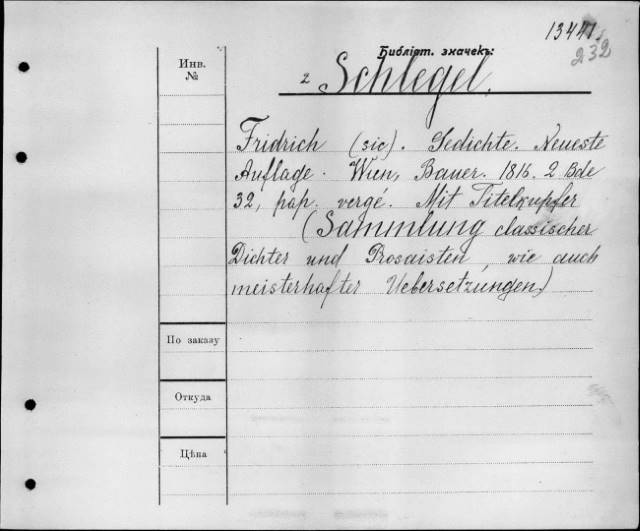 13441.
232
Библіот. значекъ:
Инв.
№
z Schlegel.
Fridrich (sic). Gedichte. Neueste
Auflage. Wien, Bauer. 1816. 2 Bde
32, pap. vergé. Mit Titelkupfer
(Sammlung classischer
Dichter und Prosaisten, wie auch
meisterhafter Uebersetzungen)
По заказу
Откуда
Цѣна